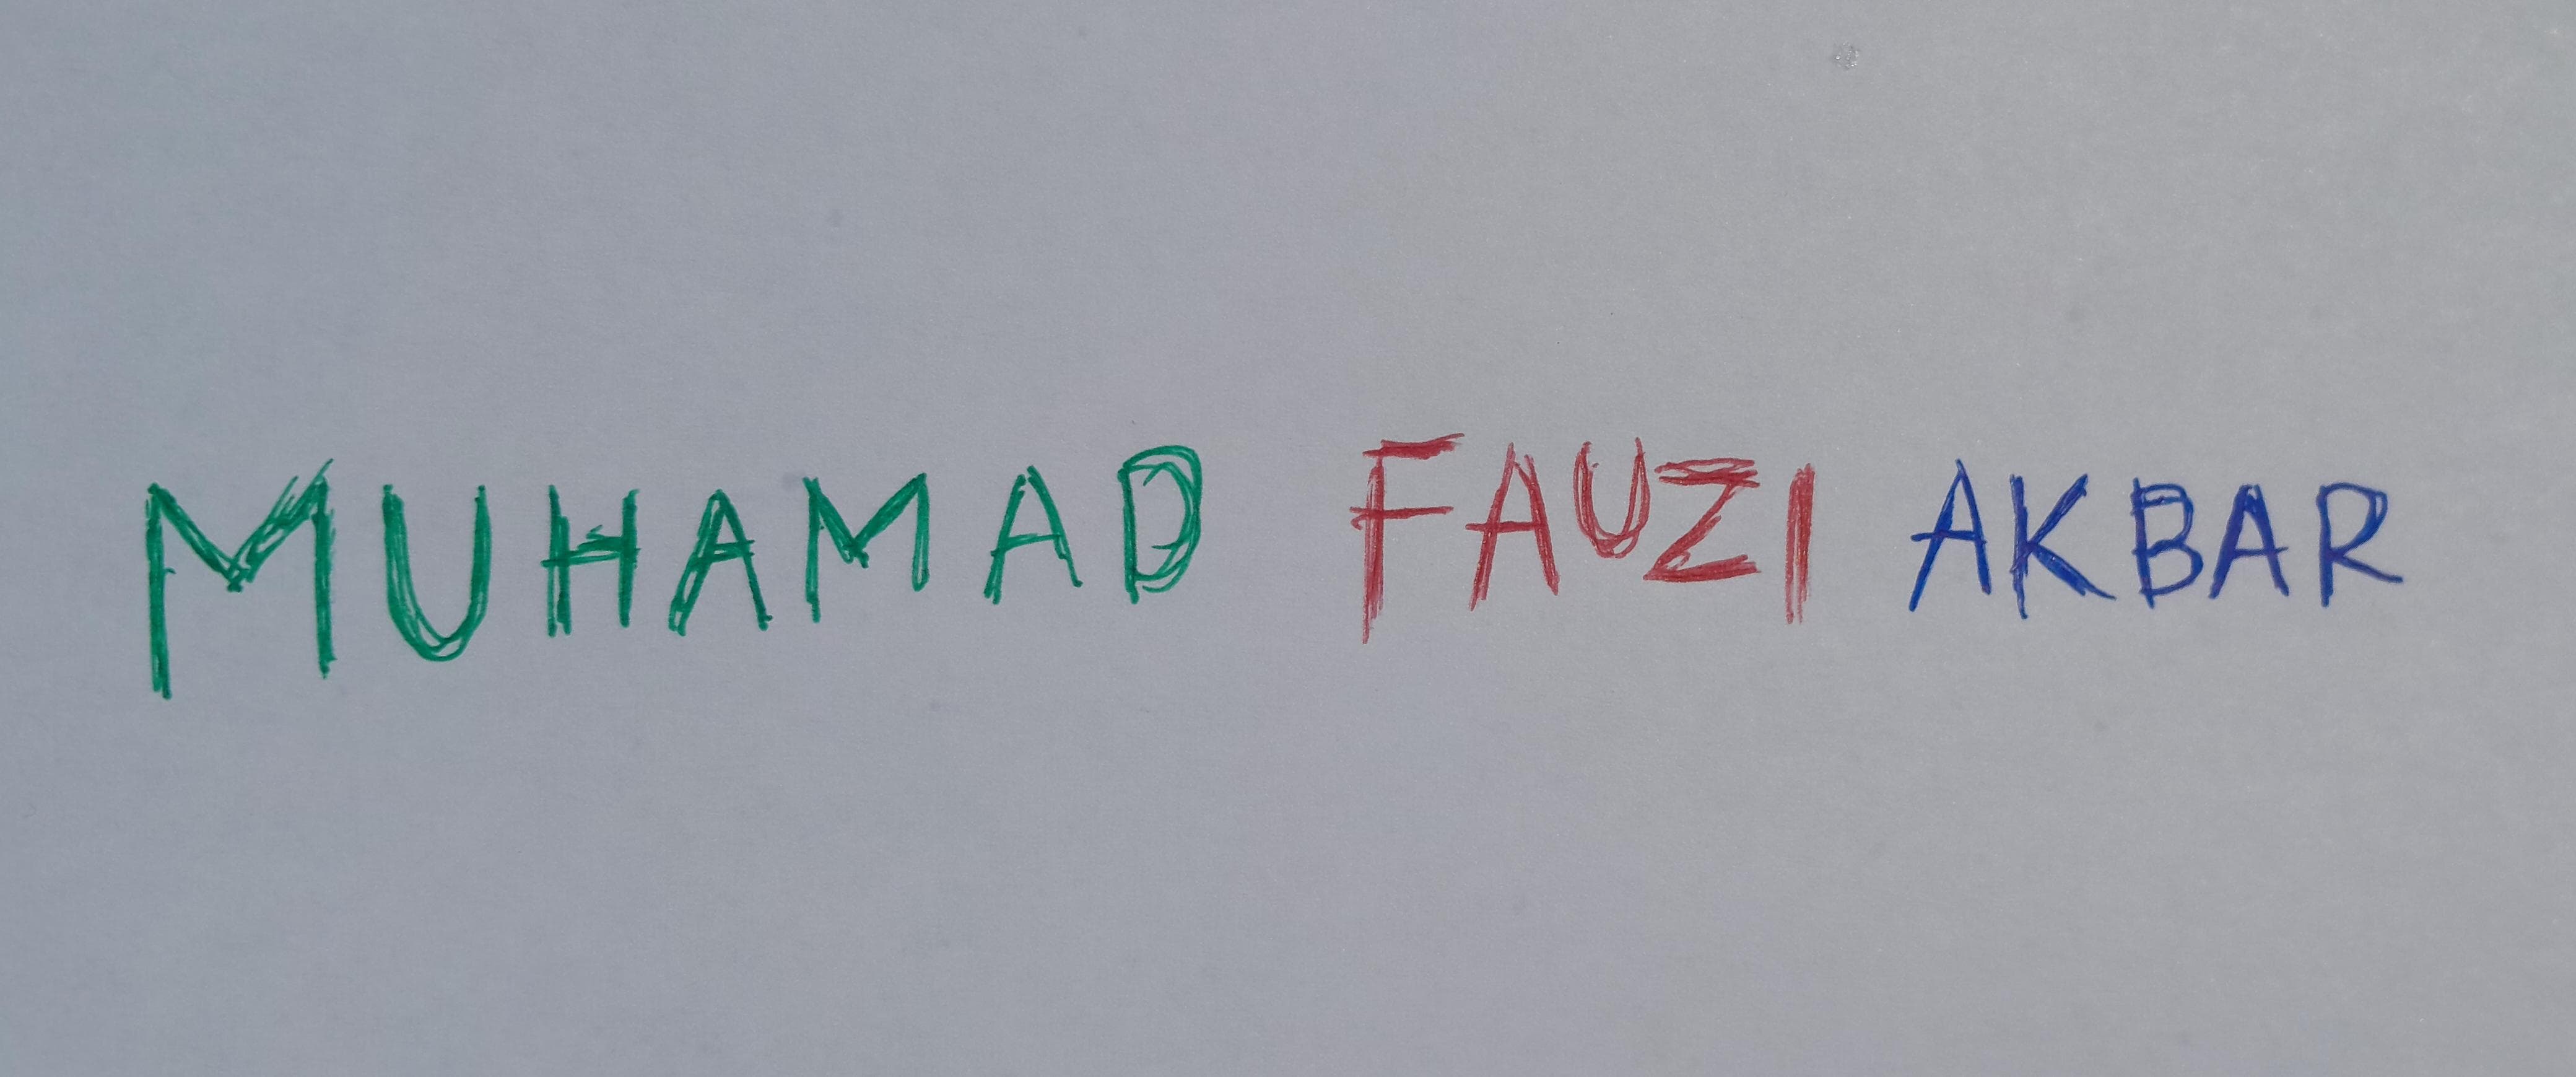 MUHAMAD FAUZI AKBAR